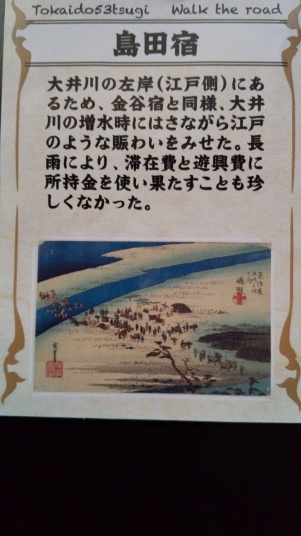 Tokaido53tsugi Walk the road
島田宿
大井川の左岸(江戸側)にあ
るため、金谷宿と同様、大井
川の増水時にはさながら江戸
のような賑わいをみせた。長
雨により、滞在費と遊興費に
所持金を使い果たすことも珍
しくなかった。